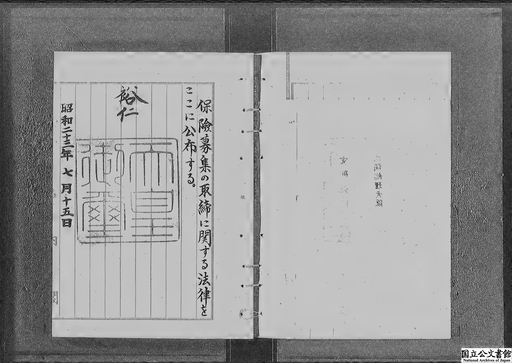 保險募集の取締に関する法律を
ここに公布する。
裕仁
天皇御璽
昭和二十三年七月十五日
内閣
国立公文書館
National Archives of Japan